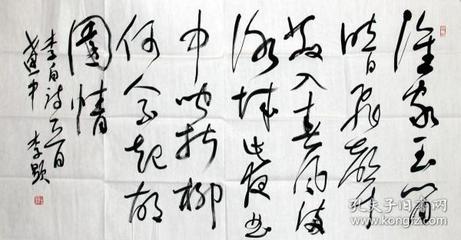 誰家玉笛
暗飛聲
散入春風滿
洛城此夜曲
中聞折柳
何人不起故
園情
李白詩一首
李
孔夫子旧书网
www.kongfz.com